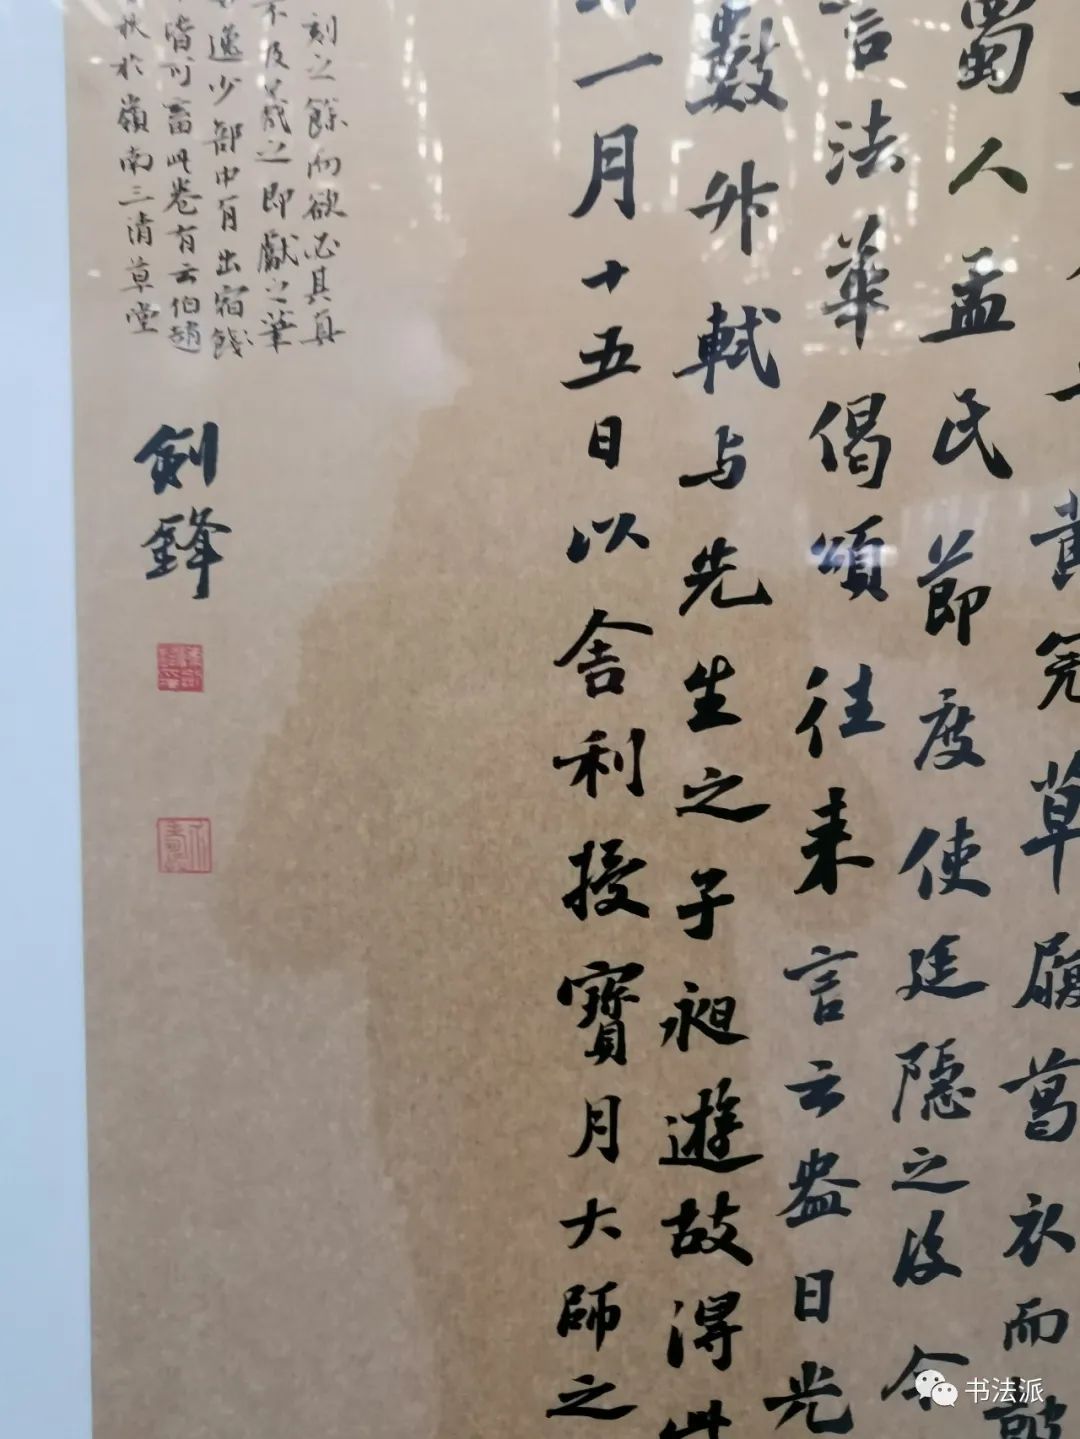 黄冠草屨葛衣而
蜀人孟氏節度使廷隱之後今
言法華偈頌往来言云盎日光
數升軾与先生之子昶遊故得此
一月十五日以舍利授寶月大師之
刻之餘而欲必具真
不及羲之即獻之筆
逸少部中有出宿餞
皆可畜此卷有云伯趙
秋於嶺南三清草堂
劍鋒
书法派